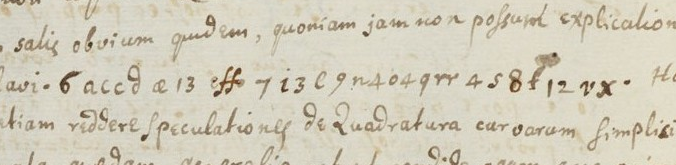 satis obvium quidem, quoniam jam non possum explication
lavi. 6 a c c d æ 13 e f f 7 i 3 l 9 n 4 o 4 q r r 4 s 8 t 12 v x. H
etiam reddere speculationes de Quadratura curvarum simplici